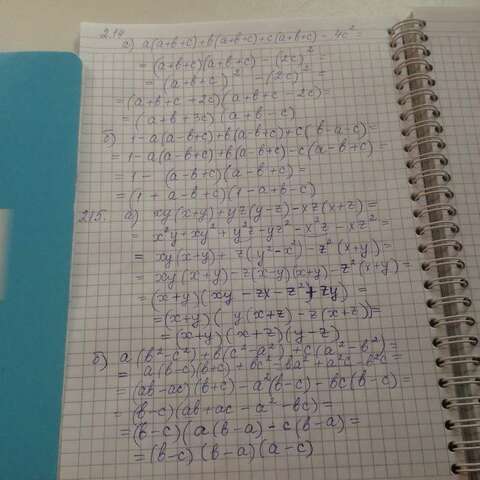 2.14
а) a(a+b+c)+b(a+b+c)+c(a+b+c) - 4c² =
= (a+b+c)(a+b+c) - (2c)² =
= (a+b+c)² - (2c)² =
= (a+b+c+2c)(a+b+c-2c) =
= (a+b+3c)(a+b-c)
б) 1-a(a-b+c)+b(a-b+c)+c(b-a-c) =
= 1-a(a-b+c)+b(a-b+c)-c(a-b+c) =
= 1 - (a-b+c)(a-b+c) =
= (1+a-b+c)(1-a+b-c)
2.15. а) xy(x+y)+yz(y-z)-xz(x+z) =
= x²y+xy²+y²z-yz²-x²z-xz² =
= xy(x+y)+z(y²-x²)-z²(x+y) =
= xy(x+y)-z(x-y)(x+y)-z²(x+y) =
= (x+y)(xy-zx-z²+zy) =
= (x+y)(y(x+z)-z(x+z)) =
= (x+y)(x+z)(y-z)
б) a(b²-c²)+b(c²-a²)+c(a²-b²) =
= a(b-c)(b+c)+bc²-ba²+a²c-b²c =
= (ab-ac)(b+c)-a²(b-c)-bc(b-c) =
= (b-c)(ab+ac-a²-bc) =
= (b-c)(a(b-a)-c(b-a) =
= (b-c)(b-a)(a-c)